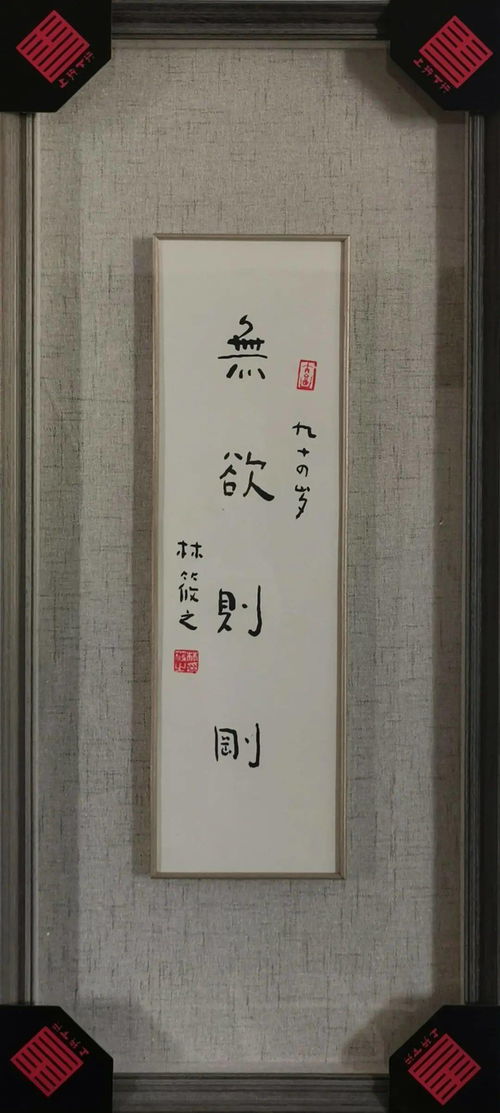 九十四岁
無欲則剛
林筱之